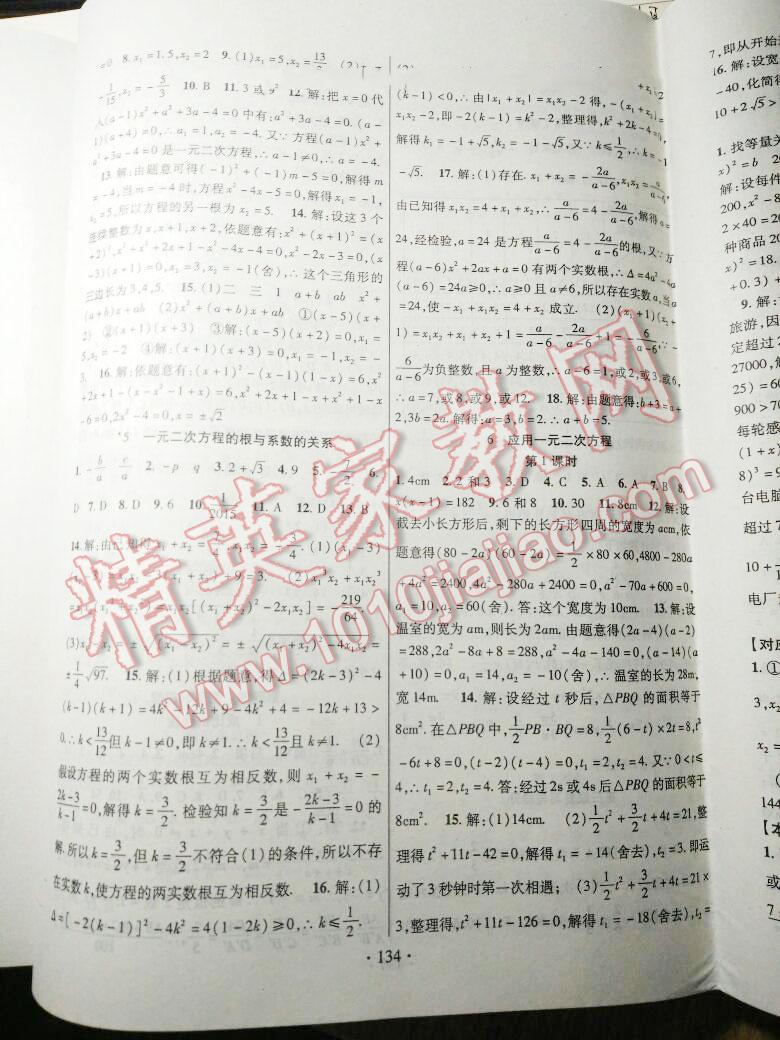 =0 8. x₁=1.5, x₂=2 9. (1)x₁=5, x₂=13/2
-1/15, x₂=-5/3 10. B 11. 3或 12. 解:把x=0代
入(a-1)x²+a²+3a-4=0中有:a²+3a-4=0. (a-
1)(a+4)=0,∴a₁=1,a₂=-4. 又∵方程(a-1)x²+
a²+3a-4=0是一元二次方程,∴a-1≠0,∴a=-4.
13. 解:由题意可得(-1)²+(-1)m-5=0,解得m
=-4,当m=-4时,方程x²-4x-5=0,解得x₁=-1,
x₂=5,所以方程的另一根为x₂=5. 14. 解:设这3个
连续整数为x,x+1,x+2,依题意有:x²+(x+1)²=(x
+2)²,x²+x²+2x+1-x²-4x-4=0,x²-2x-3=0,(x
-3)(x+1)=0,x₁=3,x₂=-1(舍),∴这个三角形的
三边长为3,4,5. 15. (1)二 三 1 a+b ab x²+
(a+b)x+ab (2)x²+(a+b)x+ab ①(x-5)(x+
2) ②(x+1)(x+3) ③解:(x-5)(x+2)=0,x₁=
5,x₂=-2 ④解:(x+1)(x+3)=0,x₁=-1,x₂=-
3. 16. 解:依题意有:(x+1)²-(x-1)(1-x)=6,x²+
2x+1-(x-x²-1+x)=6,x²+2x+1-x+x²+1-x
-6=0,2x²-4=0,x=±√2
*5 一元二次方程的根与系数的关系
1. -b/a c/a 2. -p q 3. 2+√3 4. 9 5. -7/2 6.
D 7. D 8. D 9. 6 10. 1/2015 11. A 12. D 13. B
14. 解:由已知得x₁+x₂=-2/4, =-3/4. (1)(x₁-3)
(x₂-3)= -3 +9=3. (2)x₁³x₂+x₁x₂³
=x₁x₂ =x₁x₂[(x₁+x₂)²-2x₁x₂]=-219/64
(3)x₁-x₂=±√(x₁-x₂)²=±√(x₁+x₂)²-4x₁x₂=±
1/4√97. 15. 解:(1)根据题意,得Δ=(2k-3)²-4
(k-1)(k+1)=4k²-12k+9-4k²+4=-12k+13>
0.∴k<13/12但k-1≠0,即k≠1.∴k<13/12且k≠1. (2)
假设方程的两个实数根互为相反数,则x₁+x₂=-
2k-3/k-1=0,解得k=3/2. 检验知k=3/2是-2k-3/k-1=0的
解. 所以k=3/2,但k=3/2不符合(1)的条件,所以不存
在实数k,使方程的两实数根互为相反数. 16. 解:(1)
Δ=[-2(k-1)]²-4k²=4(1-2k)≥0,∴k≤1/2.
(k-1)<0,∴由|x₁+x₂|=x₁x₂-2得,-(x₁+x₂)=
x₁x₂-2,即-2(k-1)=k²-2,整理得,k²+2k-4=0,
解得k₁=-1+√5,k₂=-1-√5,又∵k≤1/2,∴k=-1
-√5. 17. 解:(1)存在. x₁+x₂=-2a/a-6,x₁x₂=a/a-6,
由已知得x₁x₂=4+x₁+x₂,∴a/a-6=4-2a/a-6,解得a=
24,经检验,a=24是方程a/a-6=4-2a/a-6的根,又∵方
程(a-6)x²+2ax+a=0有两个实数根,∴Δ=4a²-4a
(a-6)=24a≥0,∴a≥0且a≠6,所以存在实数a,当a
=24,使-x₁+x₁x₂=4+x₂成立. (2)(x₁+1)(x₂
+1)=x₁x₂+x₁+x₂+1=a/a-6-2a/a-6+1=-6/a-6,∵-
6/a-6为负整数,且a为整数,∴a-6=1,或2,或3,或6,
∴a=7,或8,或9,或12. 18. 解:由题意得:b+3=a+
2,3b=2a. 解得:a=3,b=2. ∴a+b=5.
6 应用一元二次方程
第1课时
1. 4cm 2. 2和3 3. D 4. C 5. A 6. A 7. B 8.
x(x-1)=182 9. 6和8 10. 30 11. 8cm 12. 解:设
截去小长方形后,剩下的长方形四周的宽度为acm,依
题意得(80-2a)(60-2a)=1/2×80×60,4800-280a
+4a²=2400,4a²-280a+2400=0,a²-70a+600=0,
a₁=10,a₂=60(舍). 答:这个宽度为10cm. 13. 解:设
温室的宽为am,则长为2am. 由题意得(2a-4)(a-2)
=288,2a²-8a+8=288,a²-4a-140=0,(a-14)(a
+10)=0,a₁=14,a₂=-10(舍),∴温室的长为28m,
宽14m. 14. 解:设经过t秒后,△PBQ的面积等于
8cm². 在△PBQ中,1/2PB·BQ=8,1/2(6-t)×2t=8,t²
-6t+8=0,(t-2)(t-4)=0,t₁=2,t₂=4. 又∵0<t
<4,∴t₁=2,t₂=4. 答:经过2s或4s后△PBQ的面积等于
8cm². 15. 解:(1)14cm. (2)1/2t²+3/2t+4t=21,整
理得t²+11t-42=0,解得t₁=-14(舍去),t₂=3. 即运
动了3秒钟时第一次相遇; (3)1/2t²+3/2t+4t=21×
3,整理得,t²+11t-126=0,解得t₁=-18(舍去),t₂=
·134·
精英家教网
www.1010jiajiao.com
7,即从开始
16. 解:设宽
-40,化简得
10+2√5>
1. 找等量关
x)²=b
解:设每件
200,x²-8
2×40=20
种商品20
x)²=18.
+0.3)
9. 解:
旅游,因
定超过2
27000,解
25)=60
900>70
每轮感
(1+x)
³=(1
台电脑
超过7
10+
电厂
【对应
1. ①
3,x₂
x₂=
144
【本
1.
或
7